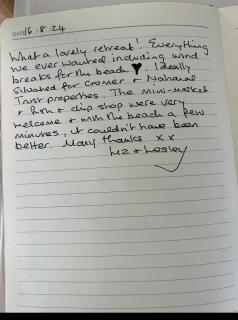 DATE 16.8.24
What a lovely retreat! Everything
we ever wanted including wind
breaks for the beach ♥. Ideally
situated for Cromer + National
Trust properties. The mini-market
+ fish + chip shop were very
welcome + with the beach a few
minutes, it couldn't have been
better. Many thanks x x
Liz + Lesley